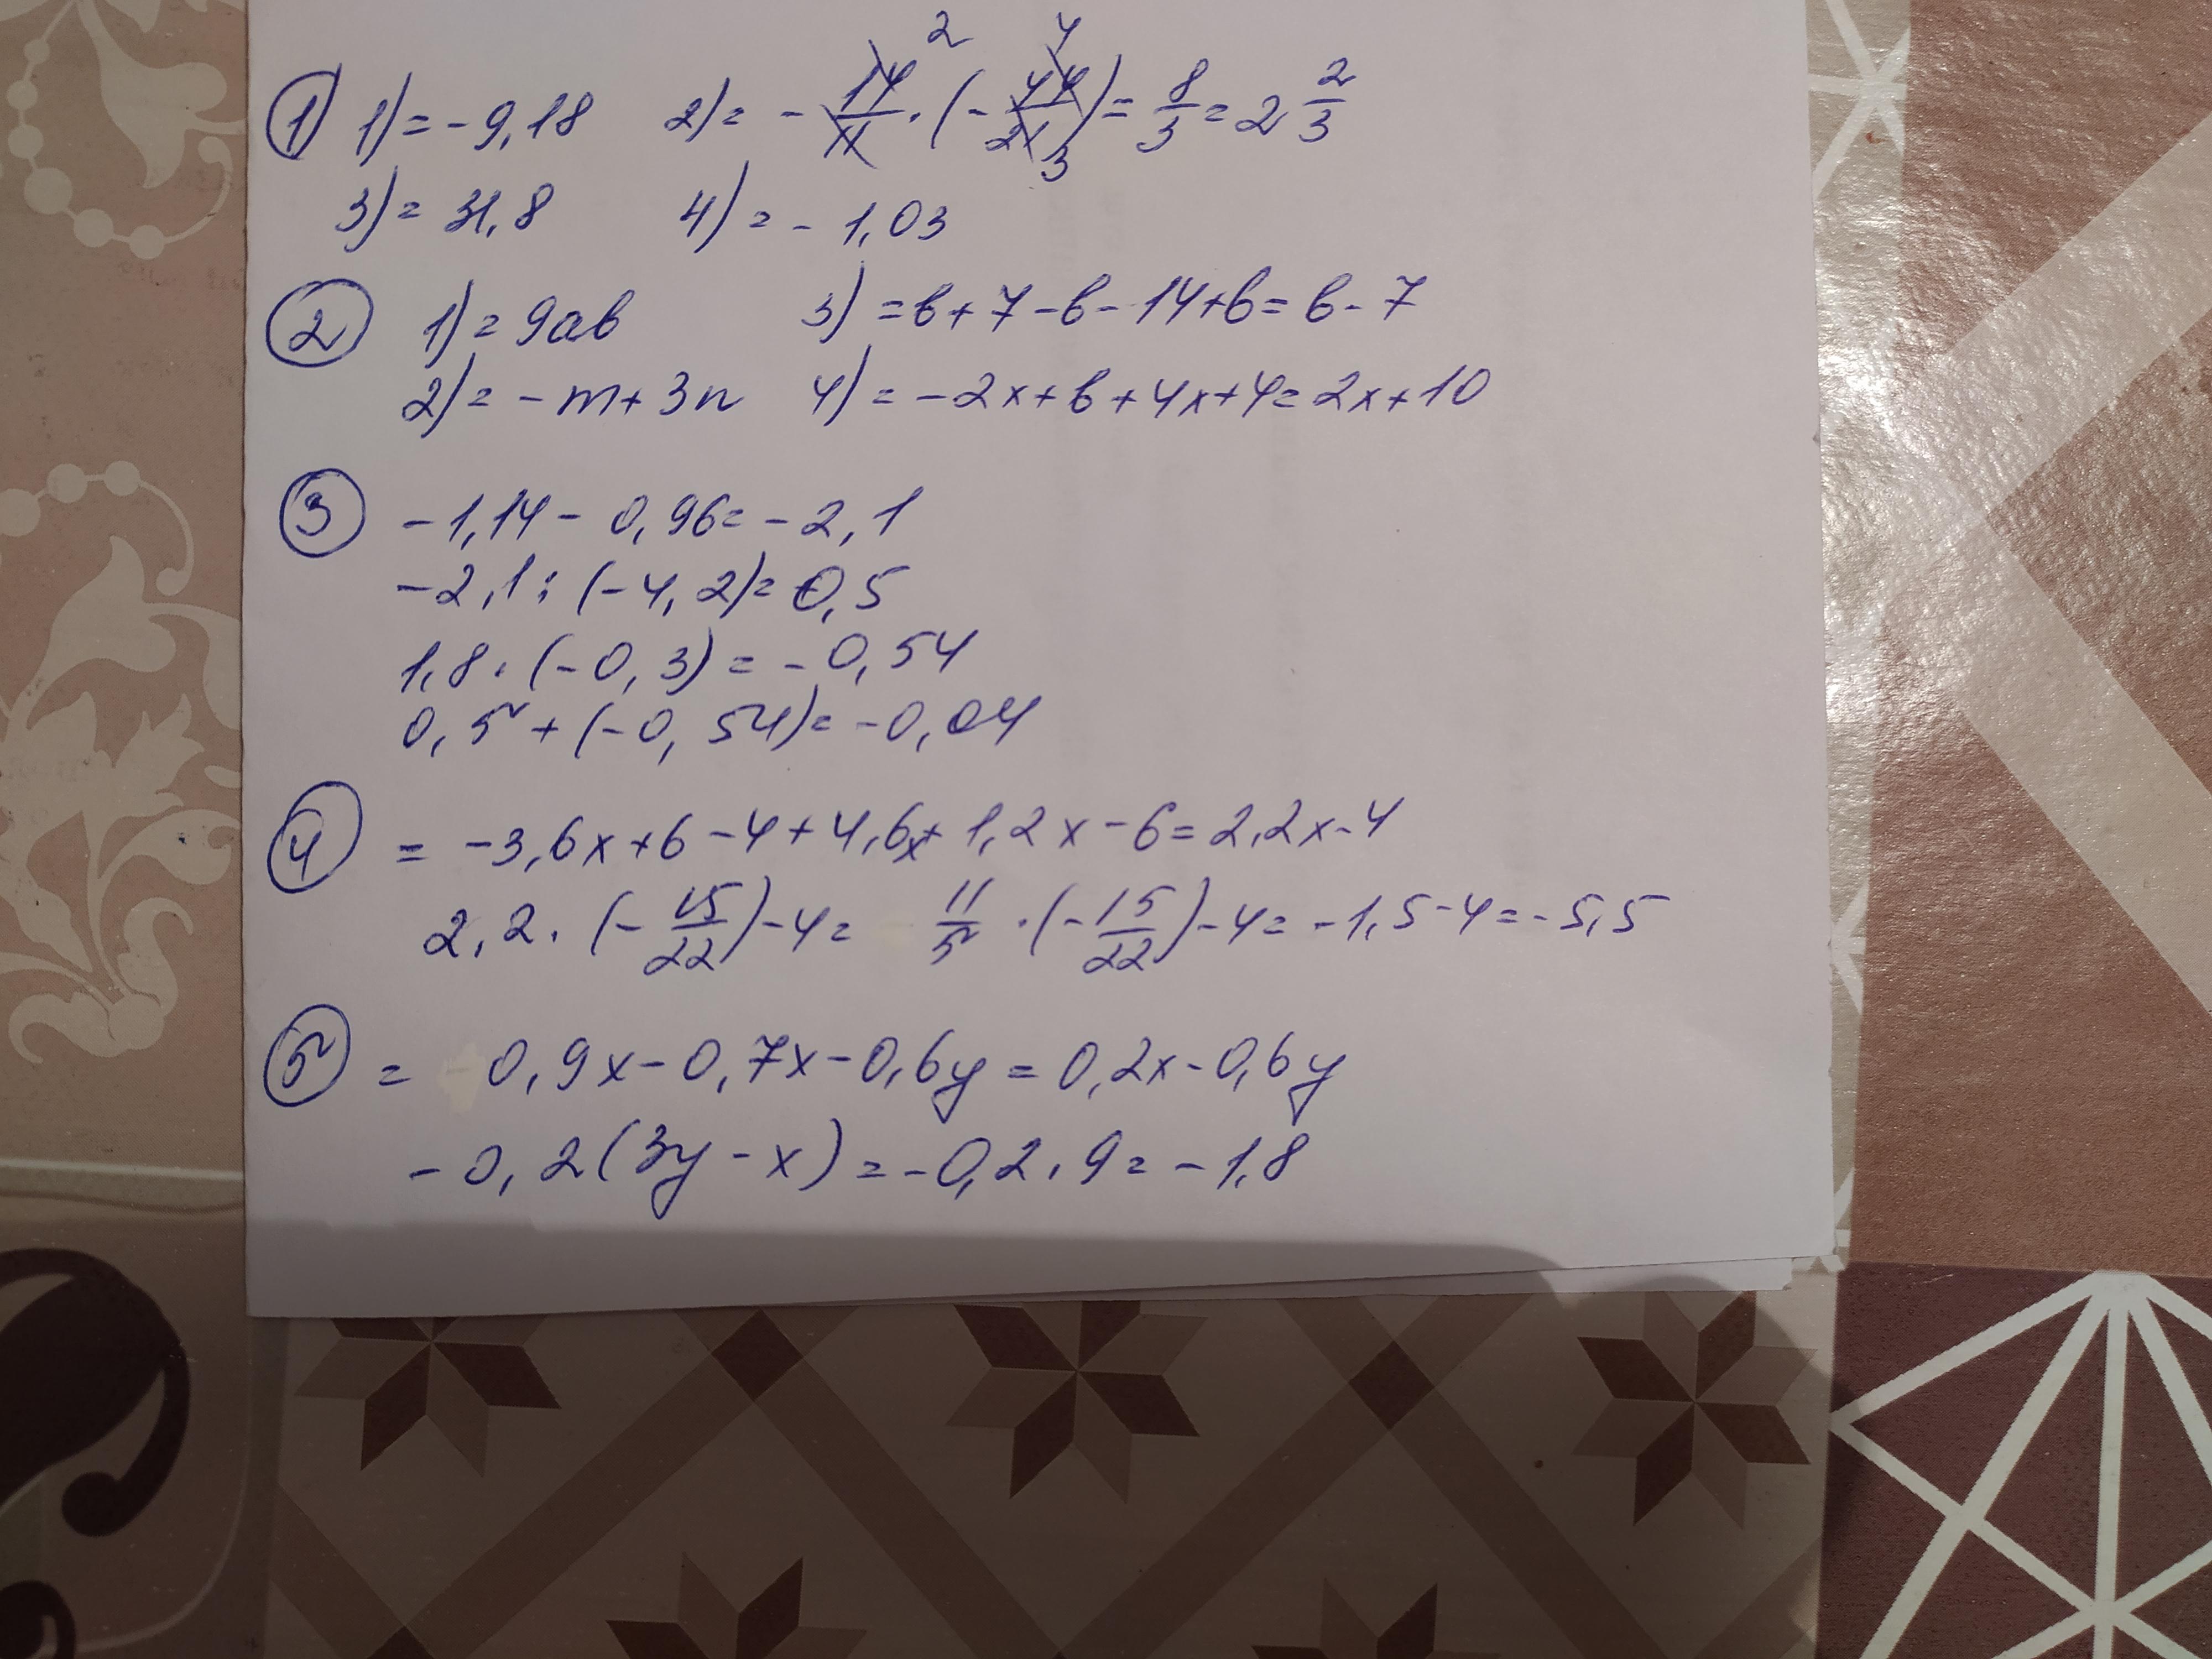 ① 1) = -9,18 2) = - 14/11 · (- 44/21) = 8/3 = 2 2/3
3) = 31,8 4) = - 1,03
② 1) = 9ab 3) = b + 7 - b - 14 + b = b - 7
2) = - m + 3n 4) = - 2x + 6 + 4x + 4 = 2x + 10
③ - 1,14 - 0,96 = - 2,1
- 2,1 : (- 4,2) = 0,5
1,8 · (- 0,3) = - 0,54
0,5 + (- 0,54) = - 0,04
④ = - 3,6x + 6 - 4 + 4,6x + 1,2x - 6 = 2,2x - 4
2,2 · (- 15/22) - 4 = 11/5 · (- 15/22) - 4 = - 1,5 - 4 = - 5,5
⑤ = 0,9x - 0,7x - 0,6y = 0,2x - 0,6y
- 0,2(3y - x) = - 0,2 · 9 = - 1,8